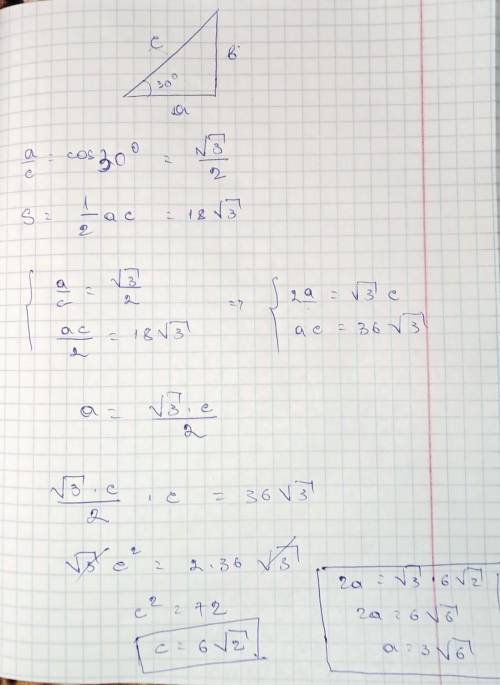 c
в
30°
a
a/c = cos 30° = √3/2
S = 1/2 ac = 18√3
{ a/c = √3/2 => { 2a = √3 c
ac/2 = 18√3 ac = 36√3
a = √3 · c / 2
√3 · c / 2 · c = 36√3
√3 c² = 2 · 36 √3
c² = 72
c = 6√2
2a = √3 · 6√2
2a = 6√6
a = 3√6